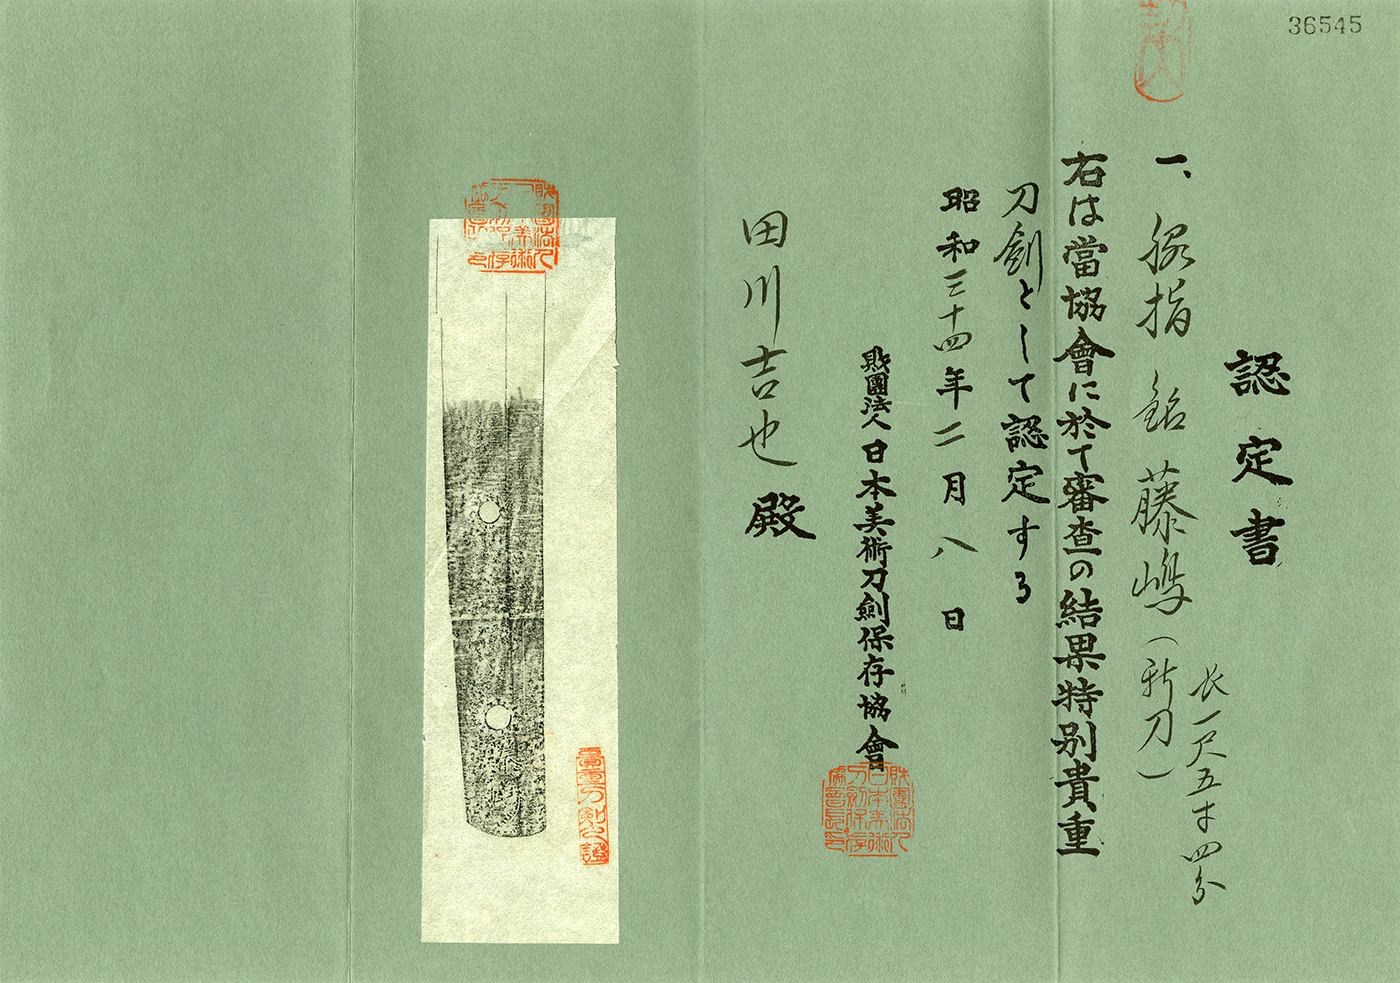 36545
認定書
一、脇指 銘 藤嶋(新刀)
長一尺五寸四分
右は當協會に於て審査の結果特別貴重
刀劍として認定する
昭和三十四年二月八日
財團法人日本美術刀劍保存協會
田川吉也殿
貴重刀剣之證